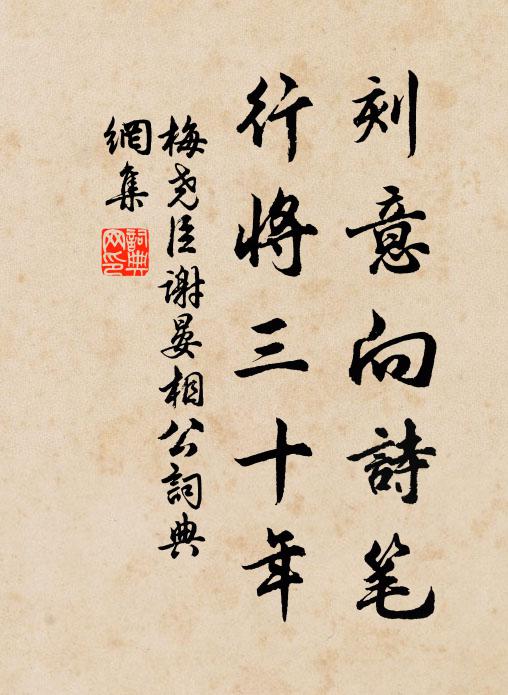 刻意向詩笔
行將三十年
梅尧臣謝晏相公詞典
網集
詞典
网印